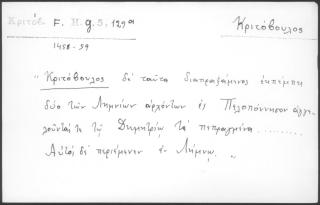 Κριτόβ. F. H. g. 5. 129 α
Κριτόβουλος
1458-59
"Κριτόβουλος δὲ ταῦτα διαπραξάμενος ἐκπέμπει
δύο τῶν Λημνίων ἀρχόντων ἐς Πελοπόννησον ἀγγε-
λοῦντάς τε τῷ Δημητρίῳ τὰ πεπραγμένα..........
Αὐτὸς δὲ περιέμενεν ἐν Λήμνῳ."